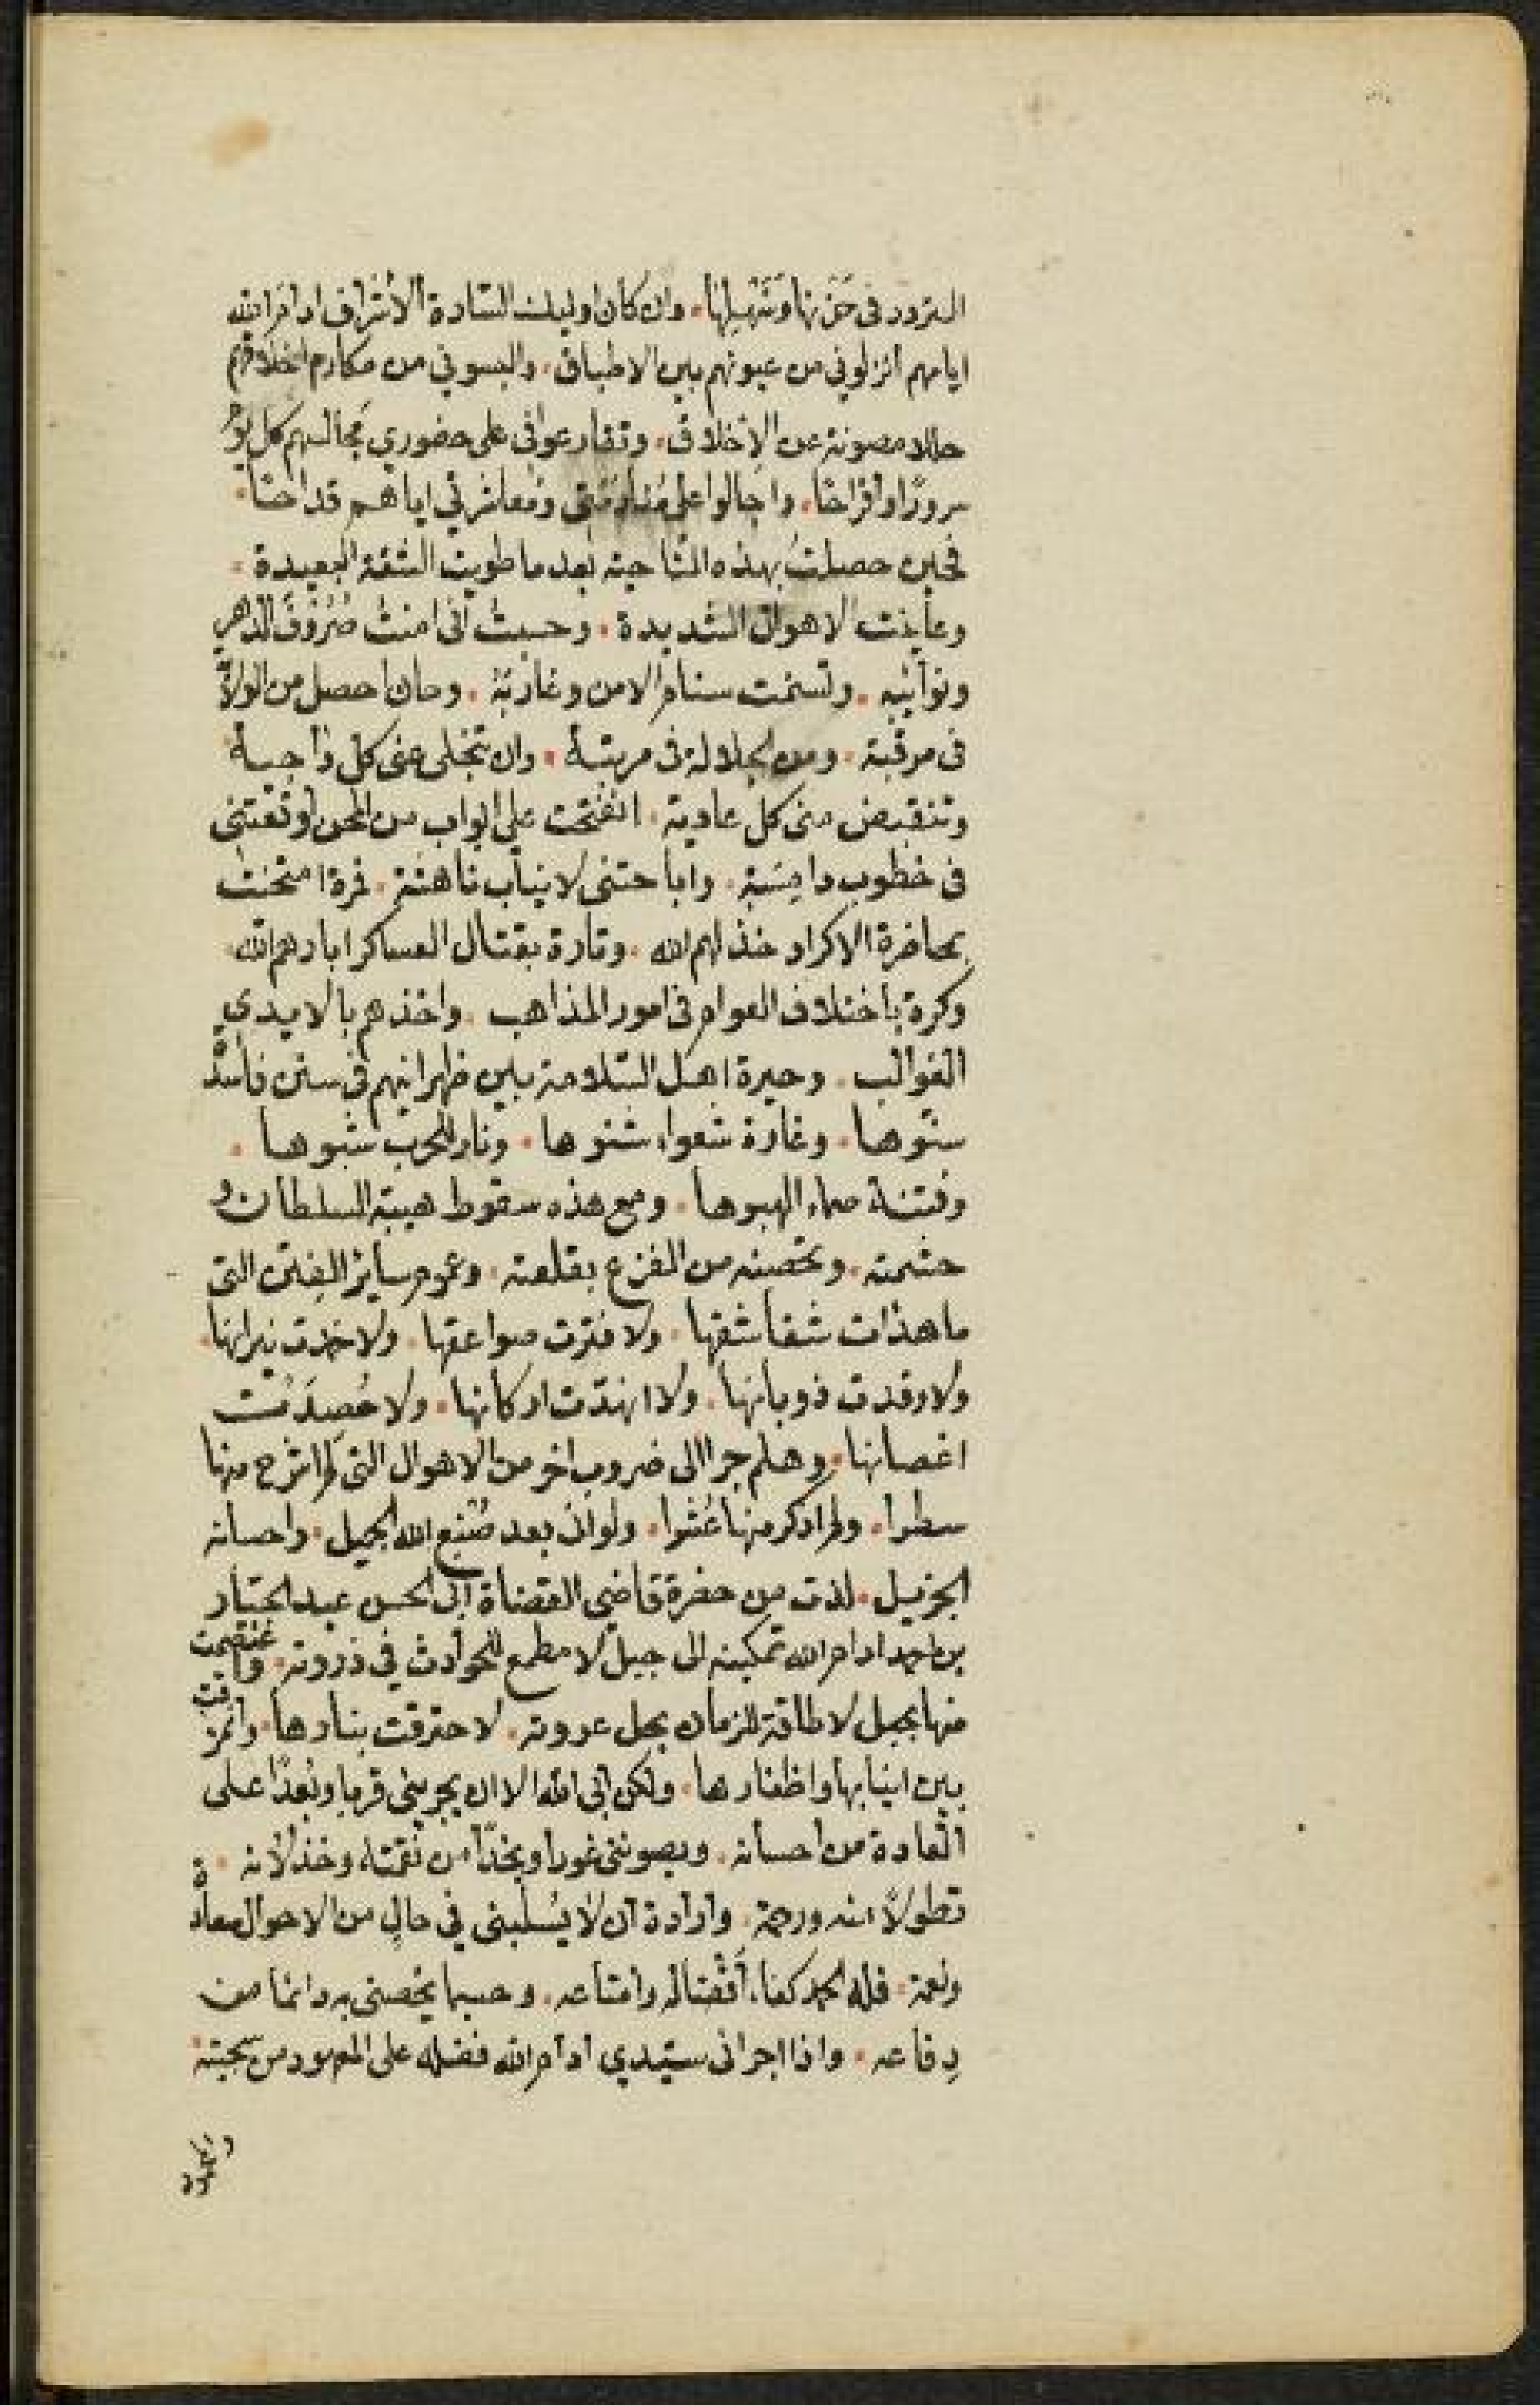 التردد فى حَزَنها وَسَهْلِها. وان كان اوليك السّادة الأشراف ادام الله
ايامهم انزلونى من عيونهم بين الاطباق. والبسونى من مكارم اخلاقهم
حللا مصونة عن الإخلاق. وتقارعوا فى على حضوري مجالسهم كل يوم
سرورًا وافراحًا. واجالوا على مُنادمتى ومُعاشرتي اياهم قداحًا.
فحين حصلتُ بهذه النّاحية بعد ما طويت الشقة البعيدة.
وعاينت الاهوال الشديدة. وحسبتُ انى امنتُ صُرُوفَ الدهر
ونوائبه. وتسنمت سنام الامن وغاربَهُ. وحان احصل من الولاة
فى مرقبة. ومن الجلالة فى مرتبة. وان تنجلى عنى كل داجية
وتنقبض منى كل عادية. انفتحت على ابواب من المحن اوقعتنى
فى خطوب دامِسَة. واباحتنى لانياب ناهشة. فمرة امتحنت
بمحاضرة الاكراد خذلهم الله. وتارة بقتال العساكر ابادهم الله.
وكرة باختلاف العوام فى امور المذاهب. واخذهم بالايدي
الغوالب. وحيرة اهل السّلامة بين ظهرانيهم فى سنن فاسدة
سنّوها. وغارة شعواء شنوها. ونار للحرب شبوها.
وفتنة صماء الهبوها. ومع هذه سقوط هيبة السلطان و
حشمته. وتحصنه من الفزع بقلعته. وعموم سائر الفِتَن التى
ما هدات شقاشقها. ولا فترت صواعقها. ولا خمدت نيرانها.
ولا رقدت ذوبانها. ولا انهدّت اركانها. ولا خُضِدَت
اغصانها. وهلم جرا الى ضروب اخر من الاهوال التى لم اشرح منها
سطرا. ولم اذكر منها عُشرا. ولو انى بعد صُنع الله الجميل. واحسانه
الجزيل. لذت من حضرة قاضي القضاة ابى الحسن عبد الجبّار
بن احمد ادام الله تمكينه الى جبل لا مطمع للحوادث في ذروته. واعتصمت
منها بحبل لا طاقة للزمان بحل عروته. لاحترقت بنارها. وتمزقت
بين انيابها واظفارها. ولكن ابى الله الا ان يجرينى قربا وبُعدًا على
العادة من احسانه. ويصوننى غورا ونجدًا من نقمته وخذلانه.
تطولاً منه ورحمة. وارادة ان لا يُسلبنى في حالٍ من الاحوال معاذة
ونعمة. فله الحمد كفاء أفضاله وامتاعه. وحسبما يخصنى به دائما من
دِفاعه. واذا اجرانى سيّدي ادام الله فضله على المعهود من سجيته